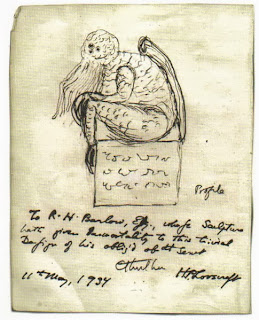 Profile
To R. H. Barlow, Esq., whose Sculpture
hath given Immortality to this trivial
Design of his oblig'd obt Servt
11th May, 1934
Cthulhu
HPLovecraft